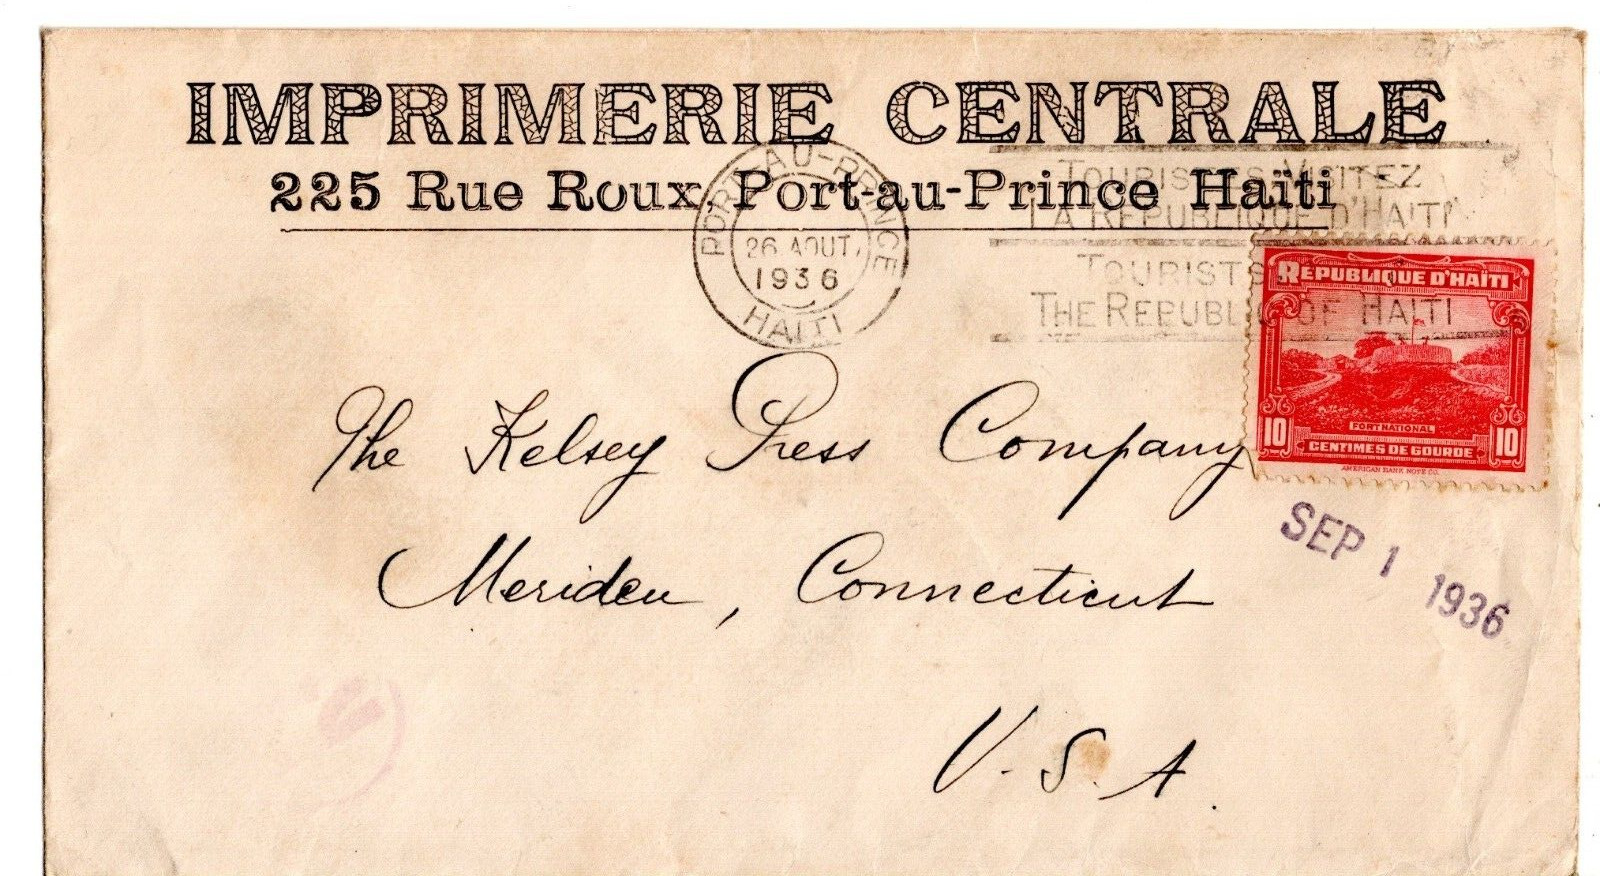 IMPRIMERIE CENTRALE
225 Rue Roux, Port-au-Prince Haïti
PORT-AU-PRINCE
26 AOUT.
1936
HAITI
TOURISTES VISITEZ
LA REPUBLIQUE D'HAITI
TOURISTS
THE REPUBLIC OF HAITI
RÉPUBLIQUE D'HAÏTI
FORT NATIONAL
10 CENTIMES DE GOURDE 10
AMERICAN BANK NOTE CO.
The Kelsey Press Company
Meriden, Connecticut
U.S.A.
SEP 1 1936